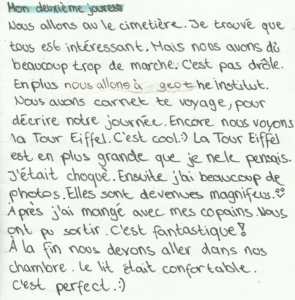 Mon deuxième jouress
Nous allons au le cimetière. Je trouvé que
tous est intéressant. Mais nous avons dû
beaucoup trop de marche. C'est pas drôle.
En plus nous allons à geothe Institut.
Nous avons carnet te voyage, pour
décrire notre journée. Encore nous voyons
la Tour Eiffel. C'est cool:) La Tour Eiffel
est en plus grande que je ne le pensais.
J'était choqué. Ensuite j'ai beaucoup de
photos. Elles sont devenues magnifeus.
Après j'ai mangé avec mes copains. Nous
ont pu sortir. C'est fantastique!
À la fin nous devons aller dans nos
chambre. le lit était confortable.
C'est perfect.:)